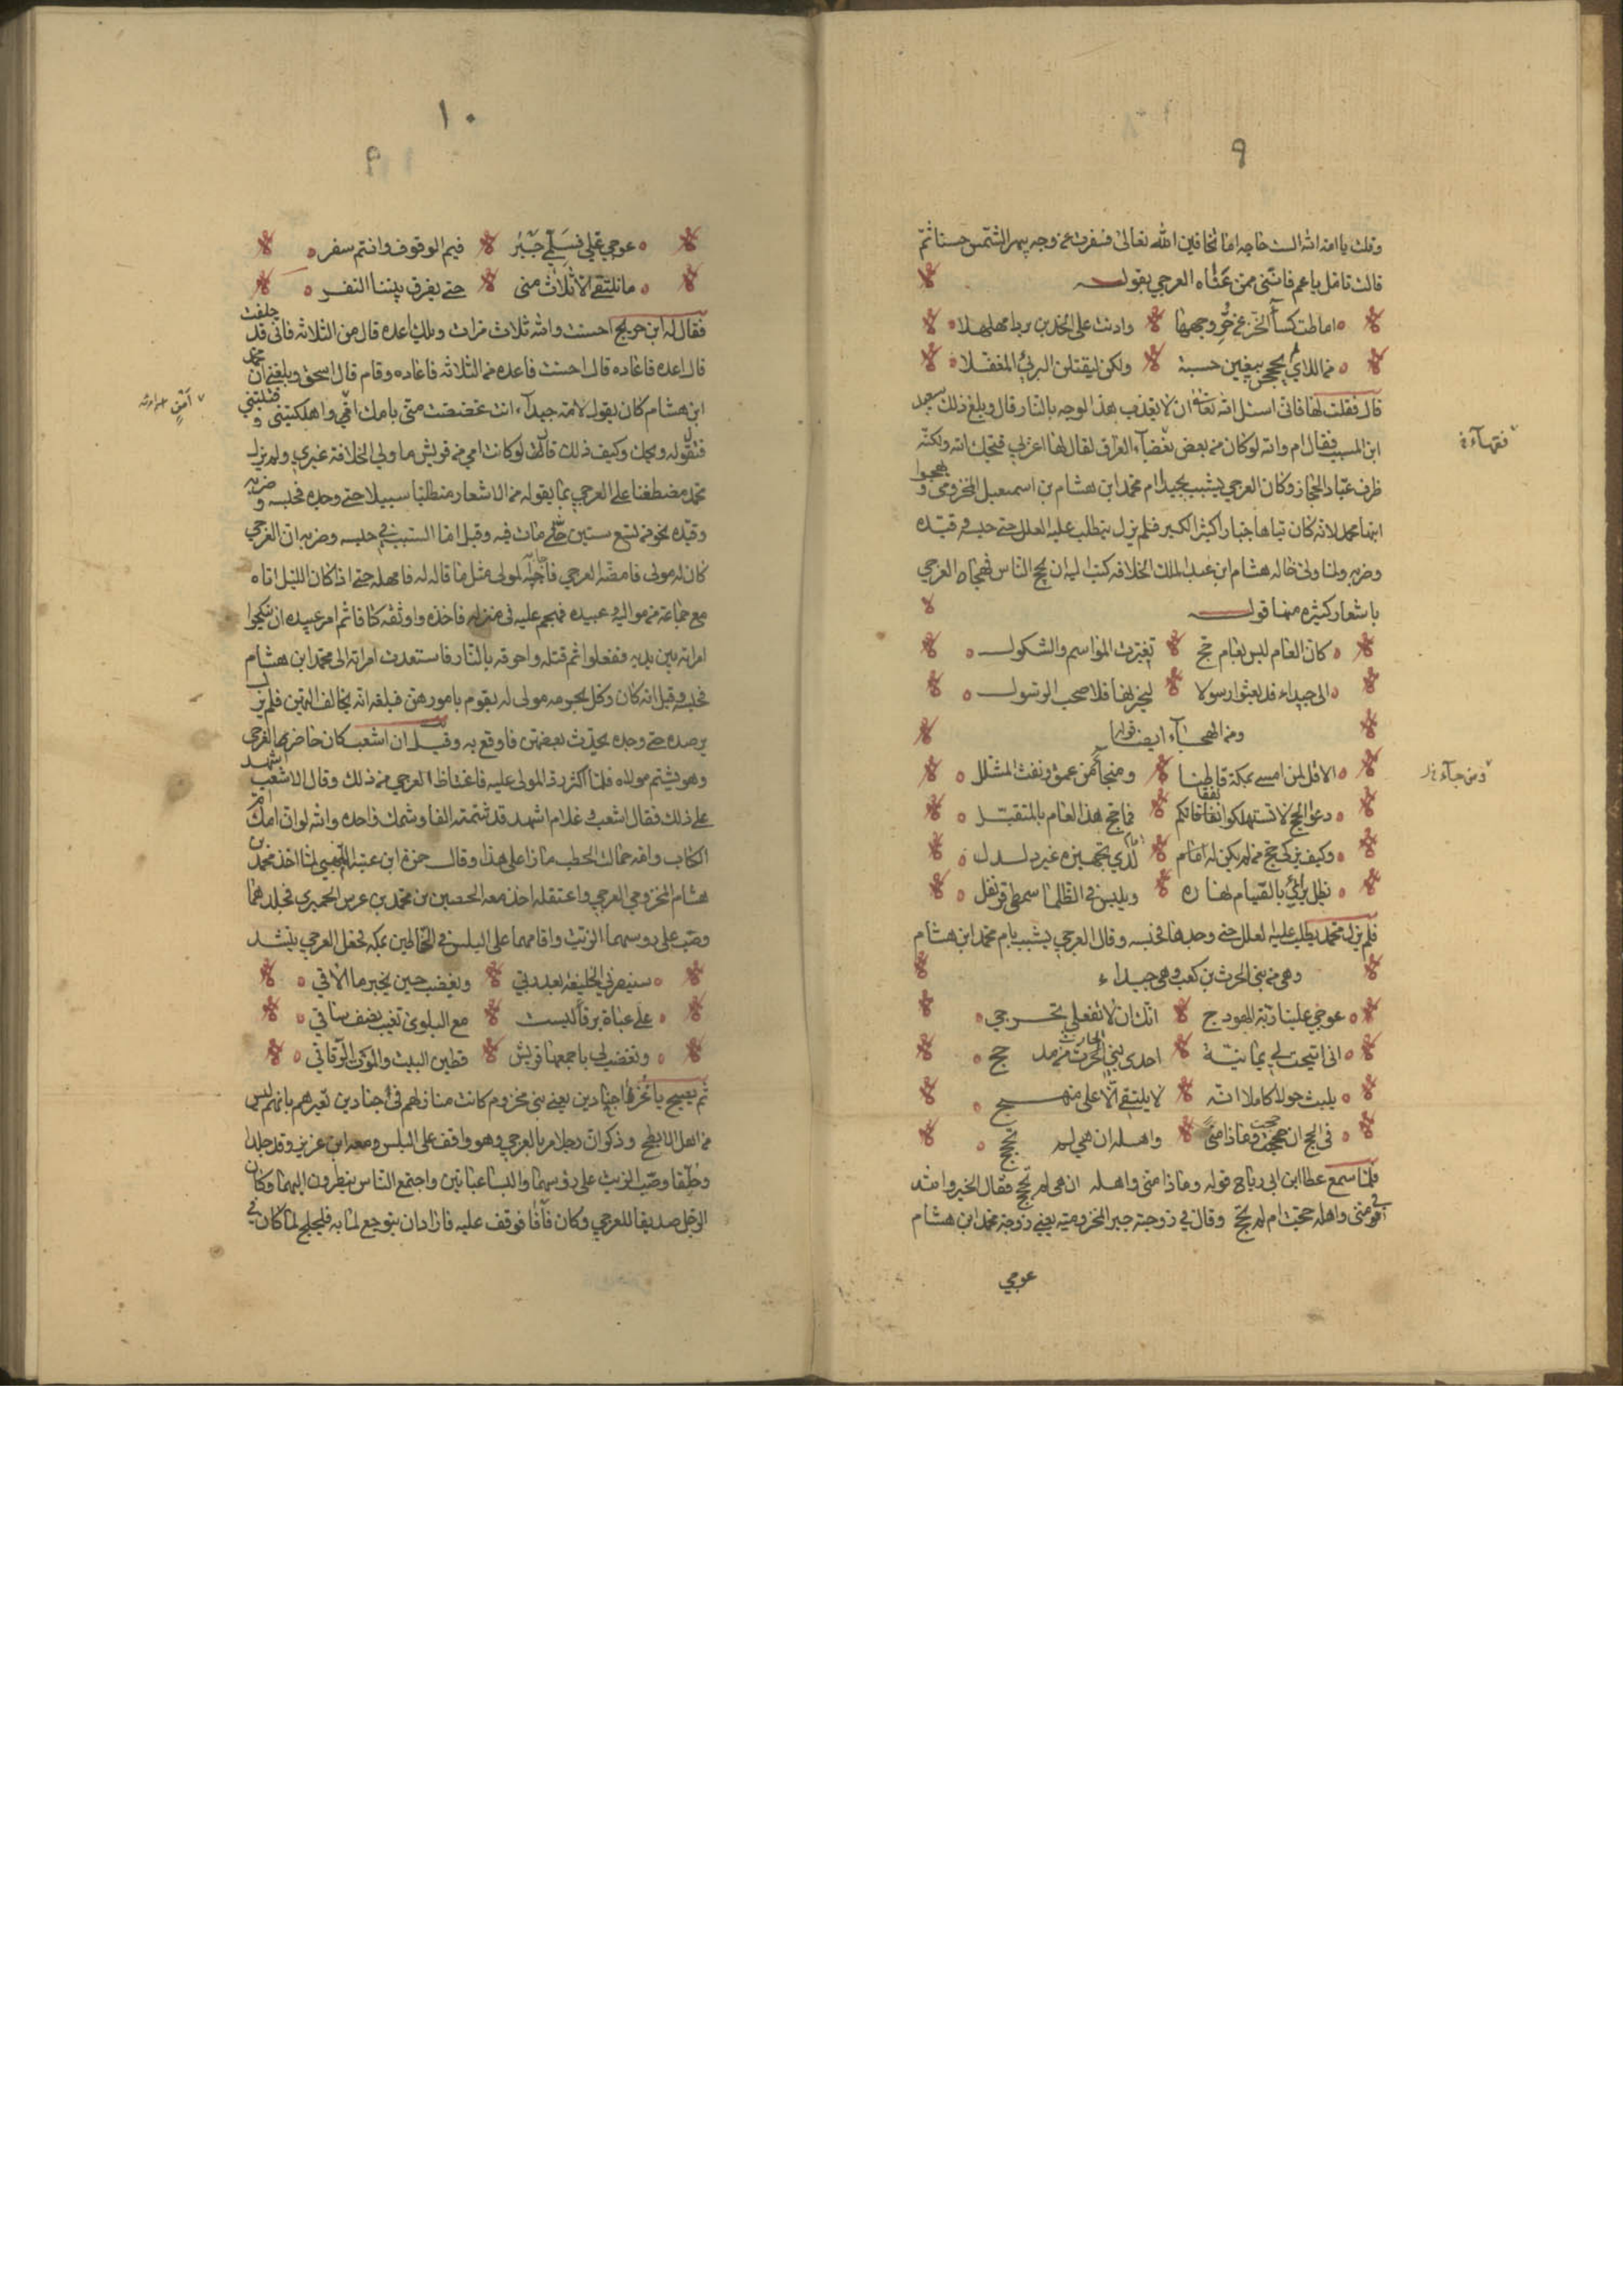 ٩
وقلت يا امة الله الست حاجه اما تخافين الله تعالى فسفرت عن وجه يبهر الشمس حسنا ثم
قالت تامل يا عم فانني ممن عناه العرجي بقوله
اماطت كسآ الخز عن حر وجهها وادنت على الخدين بردا مهلهلا
من اللاي لم يحججن يبغين حسبة ولكن ليقتلن البرئ المغفلا
قال فقلت لها فاني اسئل الله تعالى ان لا يعذب هذا الوجه بالنار قال وبلغ ذلك سعيد
ابن المسيب فقال ام والله لوكان من بعض بغضآء العراق لقال لها اعزبي قبحك الله ولكنه
فقهآء
ظرف عباد الحجاز وكان العرجي يشبب بجيدا ام محمد ابن هشام بن اسمعيل المخزومي و يهجوا
ابنها محمد لانه كان تياها جبارا كثير الكبر فلم يزل يتطلب عليه العلل حتى حبسه و قيده
وضربه ولما ولى خاله هشام ابن عبد الملك الخلافه كتب اليه ان يحج الناس فهجاه العرجي
باشعار كثيره منها قوله
كان العام ليس بعام حج تغيرت المواسم والشكول
الى جيداء قد بعثوا رسولا ليخبرها فلا صحب الرسول
ومن الهجآء ايضا قوله
الا قل لمن امسى بمكة قاطنا ومن جآء من عمق ونقب المشلل
ومن جآء
دعوا الحج لا تستهلكوا نفقاتكم فما حج هذا العام بالمتقبل
وكيف يزكى حج من لم يكن له امام لدى تجهيزه غير دلدل
يظل يرائي بالصيام نهاره ويلبس في الظلما سمطى قرنفل
فلم يزل محمد يطلب عليه العلل حتى وجدها فحبسه وقال العرجي يشبب بام محمد ابن هشام
وهي من بني الحرث بن كعب وهي جيداء
عوجي علينا ربة الهودج انك ان لا تفعلي تحرجي
اني اتيحت لي يمانية احدى بني الحرث من مذحج
الحارث
يلبث حولا كاملا انه لا يلتقي الا على منهج
في الحج ان حجت وماذا منى واهله ان هي لم تحجج
فلما سمع عطا ابن ابي رباح قوله وماذا منى واهله ان هي لم تحجج فقال الخير والله
في منى واهله حجت ام لم تحج وقال في زوجته جبر المخزوميه يعني زوجة محمد ابن هشام
عوجي
١٠
عوجي علي فسلمي جبر فيم الوقوف وانتم سفر
ما نلتقي الا ثلاث منى حتى يفرق بيننا النفر
فقال له ابن جريج احسنت والله ثلاث مرات ويلك اعده قال من الثلاثه فاني قد حلفت
قال اعده فاعاده قال احسنت فاعده من الثلاثه فاعاده وقام قال اسحق وبلغني ان محمد
ابن هشام كان يقول لامه جيدآء انت غضضت مني بانك امي واهلكتيني و قتلتيني
فتقول له ويحك وكيف ذلك قال لو كانت امي من قريش ما ولي الخلافة غيري ولم يزل
محمد مضطغنا على العرجي بما يقوله من الاشعار متطلبا سبيلا حتى وجده فحبسه و ضربه
وقيده نحو من تسع سنين حتى مات فيه وقيل اما السبب في حبسه وضربه ان العرجي
كان له مولى فامضه العرجي فاجابه المولى مثل ما قاله له فامهله حتى اذا كان الليل اتاه
مع جماعة من مواليه و عبيده فهجم عليه في منزله فاخذه واوثقه كتافا ثم امر عبيده ان ينكحوا
امراته بين يديه ففعلوا ثم قتله واحرقه بالنار فاستعدت امراته الى محمد ابن هشام
فحبسه وقيل انه كان وكل بحرمه مولى له يقوم بامورهن فبلغه انه يخالف اليهن فلم يزل
يرصده حتى وجده يحدث بعضهن فاوقع به وقيل ان اشعب كان حاضر بها العرجي
وهو يشتم مولاه فلما اكثر رد المولى عليه فاغتاظ العرجي من ذلك وقال لاشعب اشهد
على ذلك فقال اشعب و غلام اشهد قد شتمته الفا وشمك واحده والله لو ان امك ام
الكتاب وامه حمالة الحطب ما زاد على هذا وقال حمزة ابن عتبه اللهبي لما اخذ محمد بن
هشام المخزومي العرجي واعتقله اخذ معه الحصين بن محمد بن عرير الحميري فجلدهما
وصب على روسهما الزيت واقامهما على البلس في الحناطين بمكه فجعل العرجي ينشد
سينصرني الخليفه بعد ربي ويغضب حين يخبر ما الاقي
على عباءة برقآ ليست مع البلوى تغيب نصف ساقي
وتغضب لي باجمعها قريش قطين البيت والدمث الرقاقي
ثم يصيح يا غرير اجيادين يعني بني مخزوم كانت منازلهم في اجيادين تعيرهم بانهم ليس
من اهل الابطح وذكر ان رجلا مر بالعرجي وهو واقف على البلس ومعه ابن عزيز وقد جلدا
وحلقا وصب الزيت على رؤسهما والبسا عبائتين واجتمع الناس ينظرون اليهما وكان
الرجل صديقا للعرجي وكان فآفآ فوقف عليه فاراد ان يتوجع لما به فلجلج لما كان في